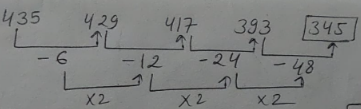 435 429 417 393 345
-6 -12 -24 -48
×2 ×2 ×2